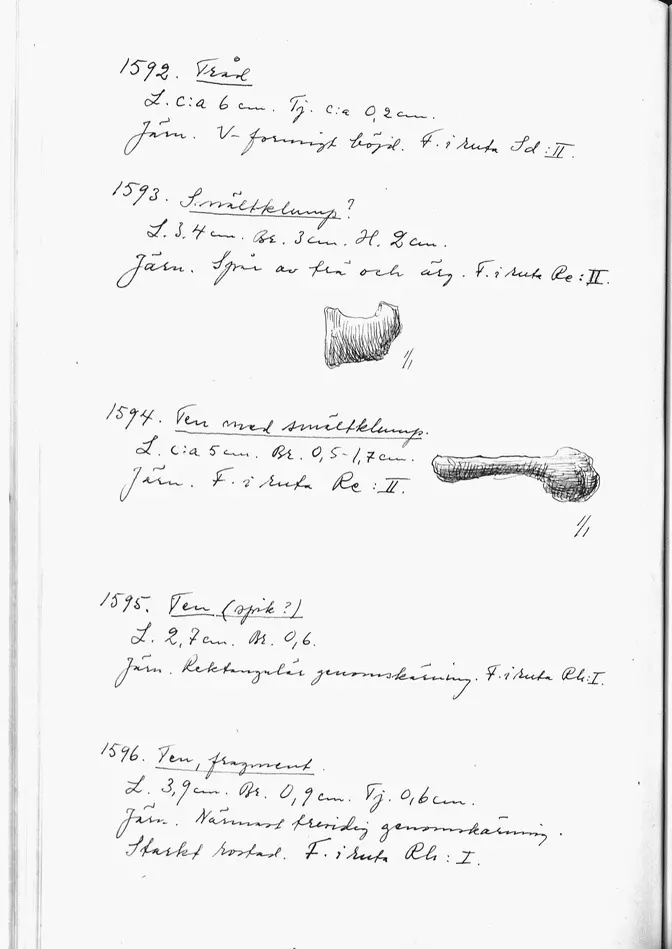 1592. Tråd
L. c:a 6 cm. Tj. c:a 0,2 cm.
Järn. V-formigt böjd. F. i ruta Sd:II.
1593. Smältklump?
L. 3,4 cm. Br. 3 cm. H. 2 cm.
Järn. Spår av trä och ärg. F. i ruta Re:II.
1/1
1594. Ten med smältklump.
L. c:a 5 cm. Br. 0,5-1,7 cm.
Järn. F. i ruta Re:II.
1/1
1595. Ten (spik?)
L. 2,7 cm. Br. 0,6.
Järn. Rektangulär genomskärning. F. i ruta Rh:I.
1596. Ten, fragment.
L. 3,9 cm. Br. 0,9 cm. Tj. 0,6 cm.
Järn. Närmast tresidig genomskärning.
Starkt rostad. F. i ruta Rh:I.